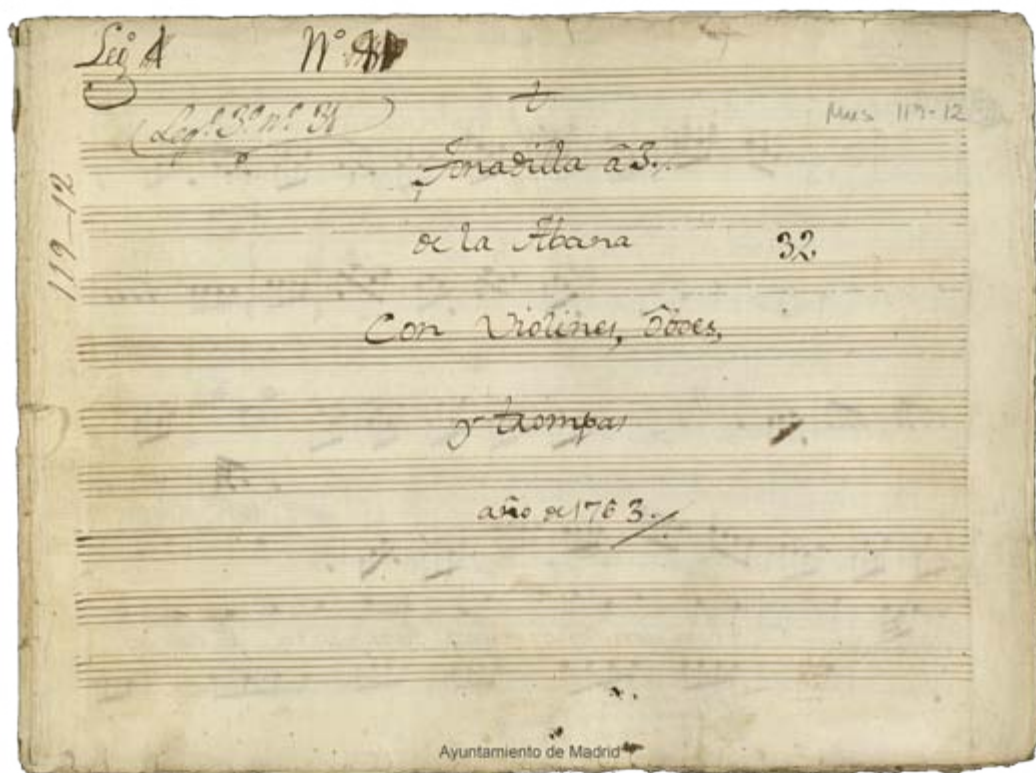 Leg.º 1 Nº
(Leg.º 3.º n.º 31)
Mus 119-12
119-12
Tonadilla â 3.
de la Abana
32
Con Violines, Oboes,
y trompas
año de 1763.
Ayuntamiento de Madrid